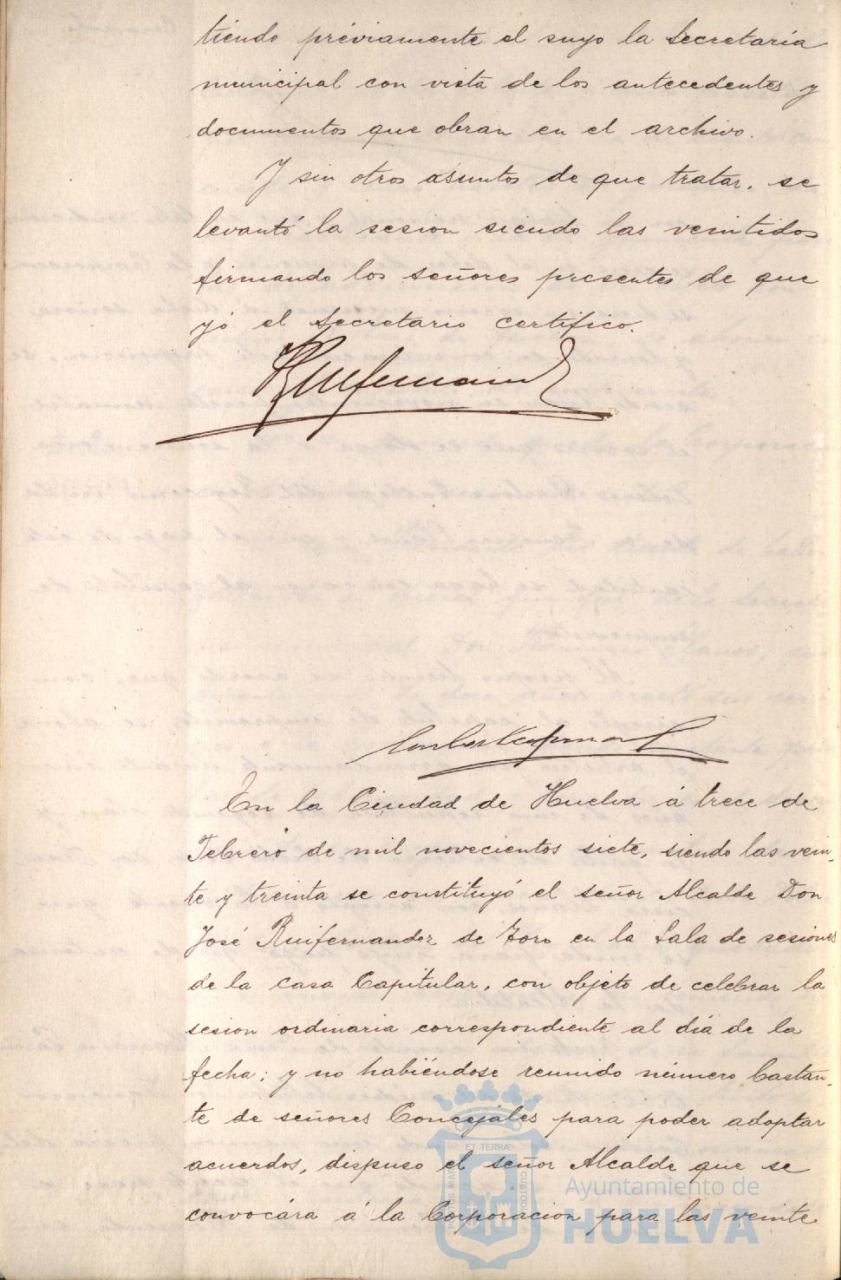 tiendo préviamente el suyo la Secretaría
municipal con vista de los antecedentes y
documentos que obran en el archivo.
Y sin otros asuntos de que tratar, se
levantó la sesion siendo las veintidos
firmando los señores presentes de que
yó el Secretario certifico.
En la Ciudad de Huelva á trece de
Febrero de mil novecientos siete, siendo las vein-
te y treinta se constituyó el señor Alcalde Don
José Ruifernandez de Toro en la Sala de sesiones
de la casa Capitular, con objeto de celebrar la
sesion ordinaria correspondiente al día de la
fecha; y no habiéndose reunido número bastan-
te de señores Concejales para poder adoptar
acuerdos, dispuso el señor Alcalde que se
convocára á la Corporacion para las veinte
ET TERRA
Ayuntamiento de
HUELVA